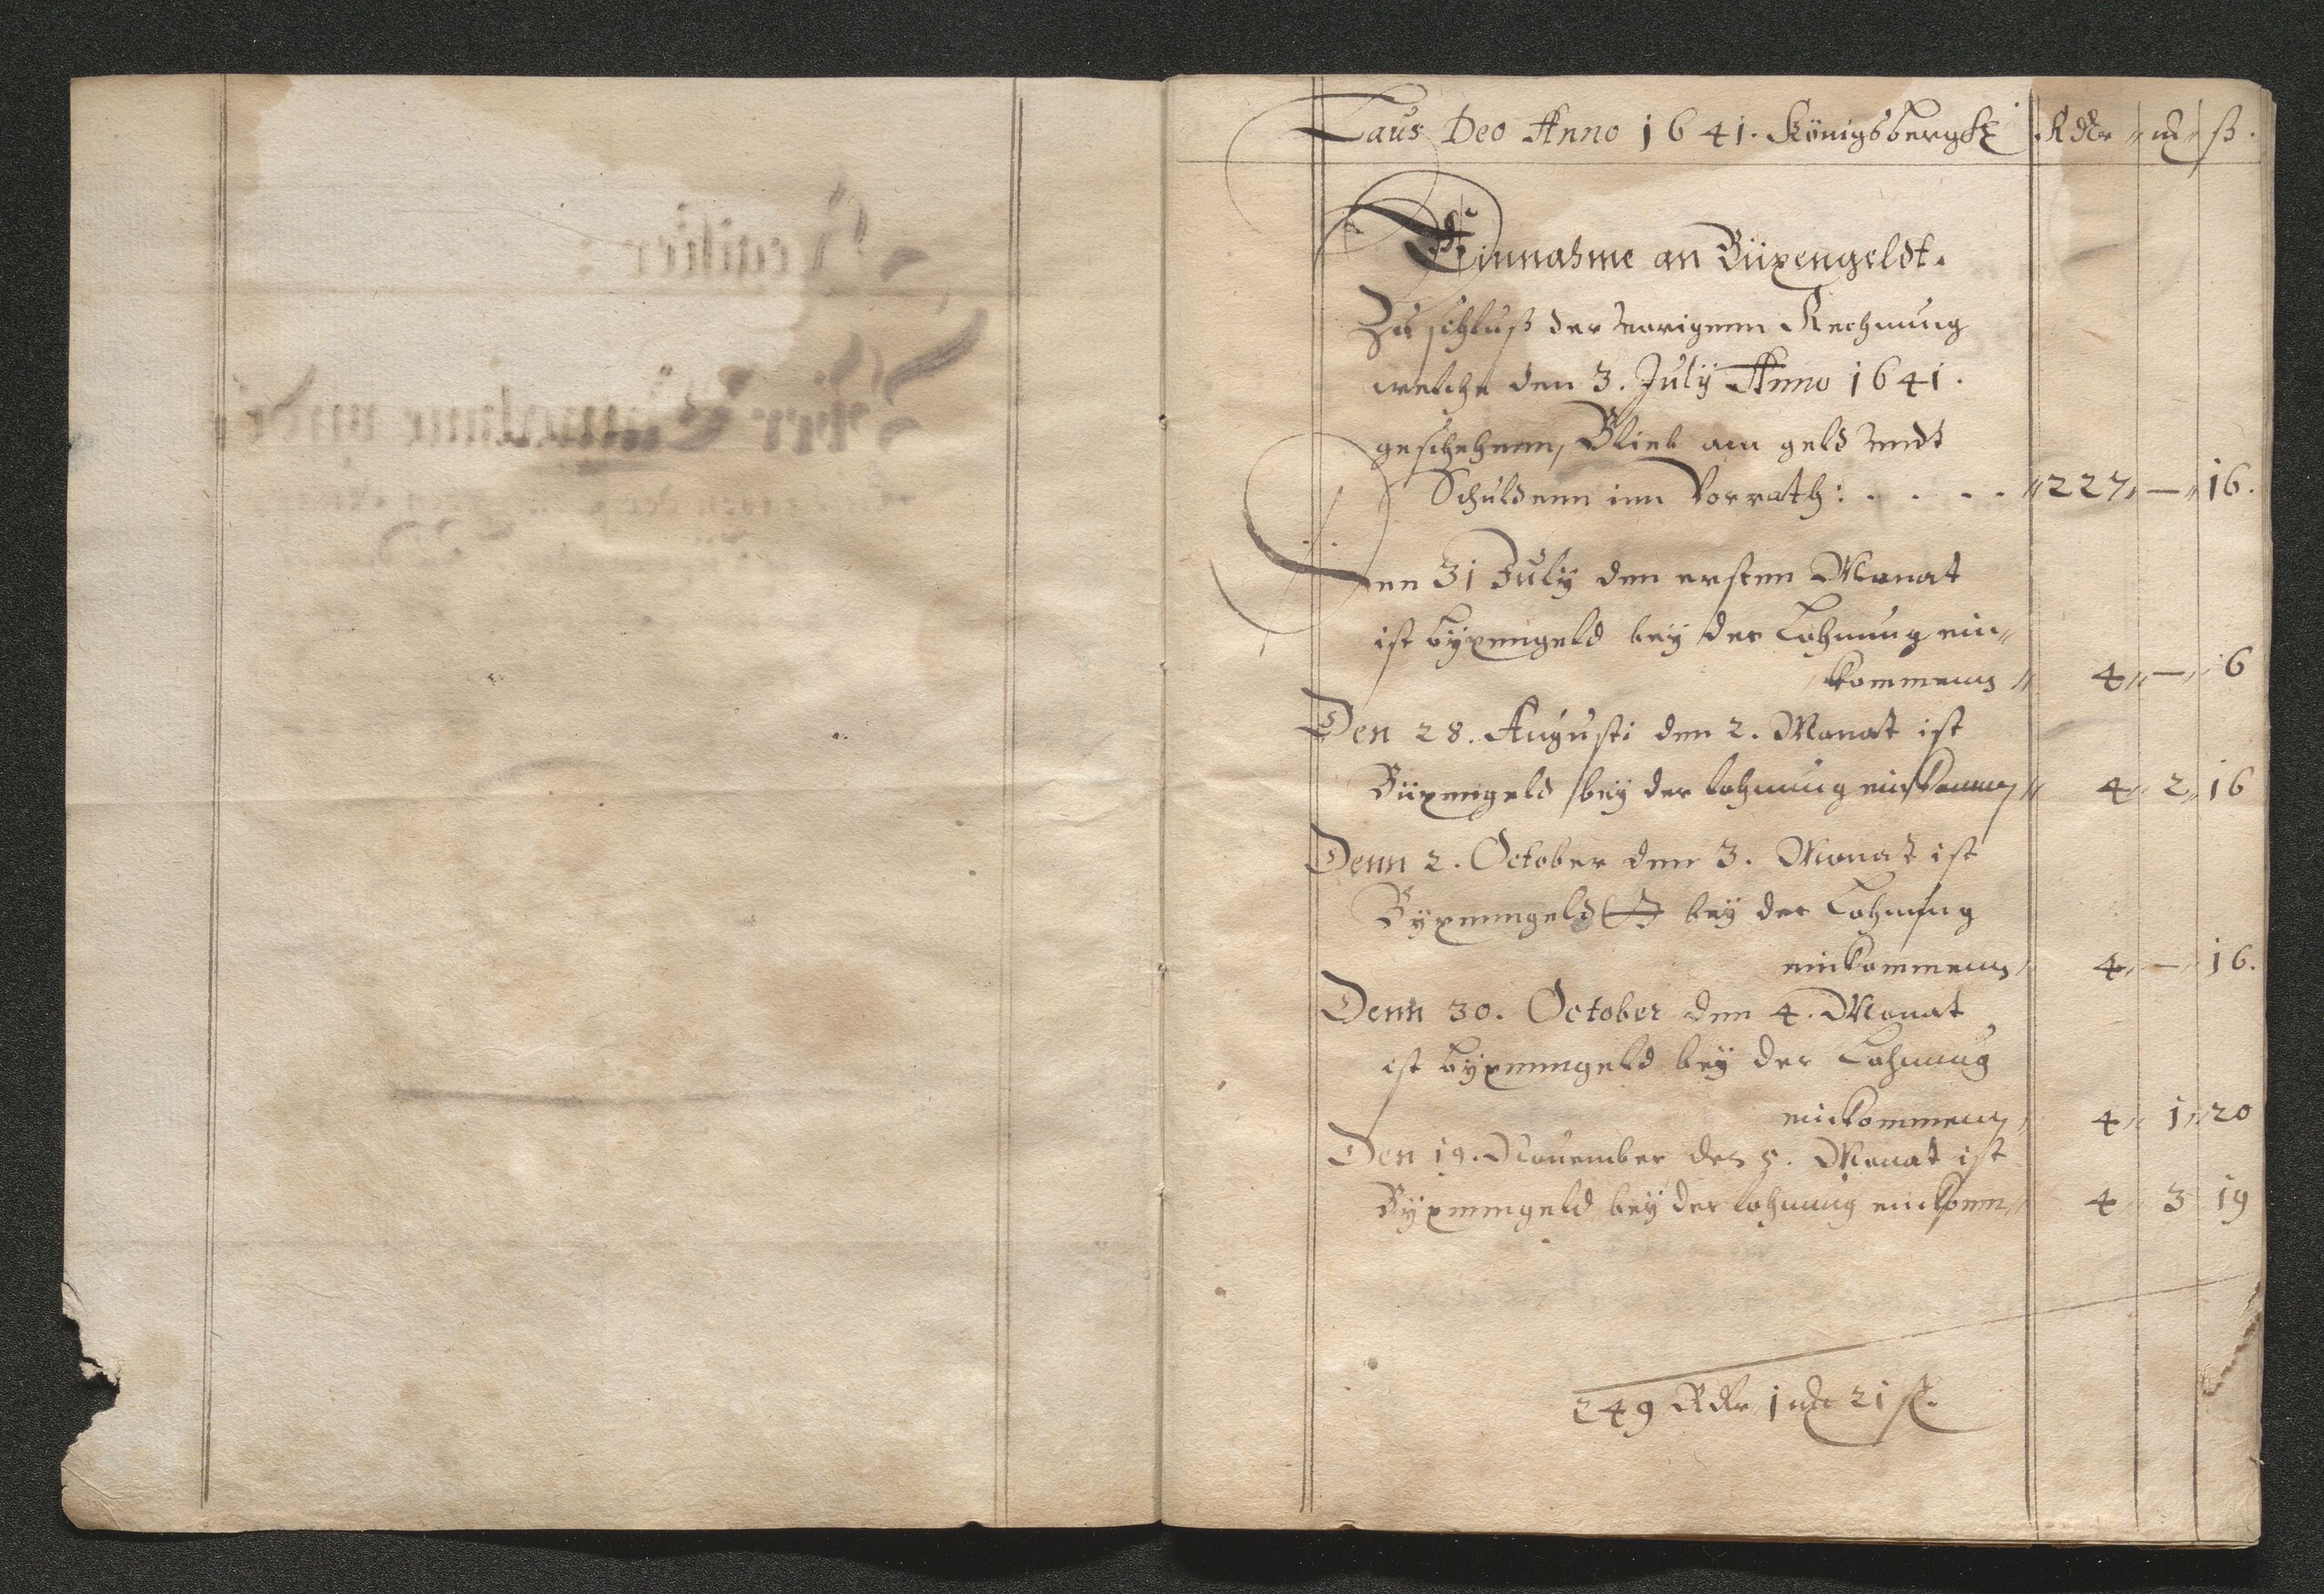 Laus Deo Anno 1641. Königsbergk Rdlr m ß.
Einnahme an Büxengeldt.
Zu schluß der vorigenn Rechnung
welche den 3. Julÿ Anno 1641.
geschehenn, Blieb am geld vndt
Schuldenn inn Vorrath: . . . . 227 — 16.
Den 31 Julÿ den ersten Monat
ist büxengeld beÿ der Lohnung ein
kommenn 4 — 6
Den 28. Augusti den 2. Monat ist
Büxengeld beÿ der lohnung einkommen 4 2 16
Denn 2. October den 3. Monat ist
Bÿxenngeld beÿ der Lohnung
einkommenn 4 — 16.
Denn 30. October den 4. Monat
ist bÿxenngeld beÿ der Lohnung
einkommenn 4 1 20
Den 19. Nouember des 5. Monat ist
Bÿxenngeld beÿ der lohnung einkomm 4 3 19
249 Rdlr 1 m 21 ß.